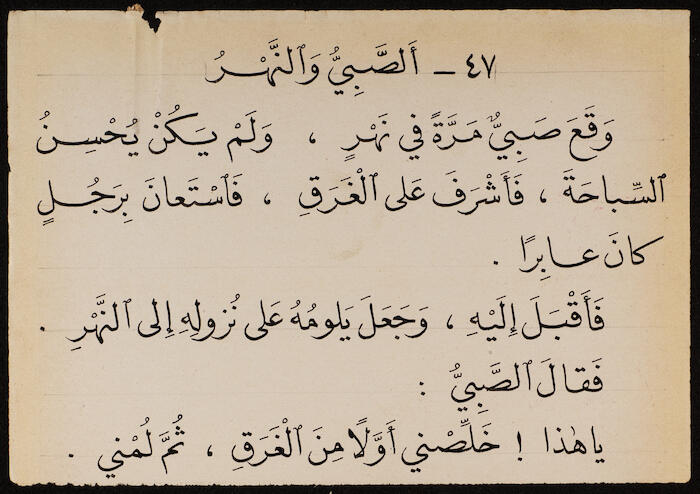 ٤٧ – أَلصَّبِيُّ وَٱلنَّهْرُ
وَقَعَ صَبِيٌّ مَرَّةً في نَهْرٍ ، وَلَمْ يَكُنْ يُحْسِنُ
ٱلسِّباحَةَ ، فَأَشْرَفَ عَلى ٱلْغَرَقِ ، فَٱسْتَعانَ بِرَجُلٍ
كانَ عابِرًا .
فَأَقْبَلَ إِلَيْهِ ، وَجَعَلَ يَلومُهُ عَلى نُزولِهِ إِلى ٱلنَّهْرِ .
فَقالَ ٱلصَّبِيُّ :
ياهٰذا ! خَلِّصْني أَوَّلًا مِنَ ٱلْغَرَقِ ، ثُمَّ لُمْني .